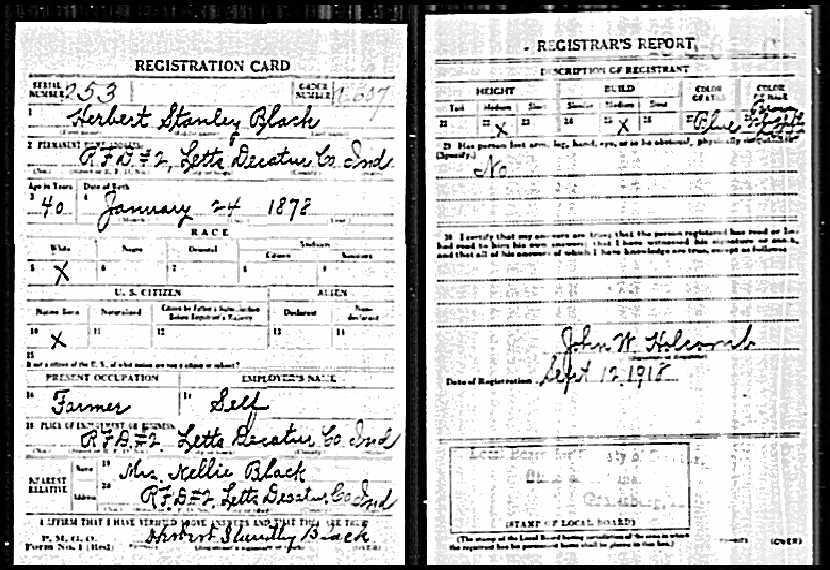 REGISTRATION CARD
SERIAL NUMBER 253
ORDER NUMBER
1 Herbert Stanley Black
2 PERMANENT HOME ADDRESS:
R.F.D. #2, Letts Decatur Co. Ind
Age in Years Date of Birth
3 40 4 January 24 1878
RACE
White Negro Oriental Indian
Citizen
5 X 6 7 8 9
U. S. CITIZEN ALIEN
Native Born Naturalized Citizen by Father's Naturalization Before Registrant's Majority Declarant Non-declarant
10 X 11 12 13 14
15
If not a citizen of the U. S., of what nation are you a citizen or subject?
PRESENT OCCUPATION EMPLOYER'S NAME
16 Farmer 17 Self
18 PLACE OF EMPLOYMENT OR BUSINESS
R.F.D. #2 Letts Decatur Co. Ind
NEAREST RELATIVE
Name 19 Mrs. Nellie Black
Address 20 R.F.D. #2, Letts Decatur Co. Ind
I AFFIRM THAT I HAVE VERIFIED ABOVE ANSWERS AND THAT THEY ARE TRUE
P. M. G. O.
Form No. 1 (Red)
Black
(OVER)
REGISTRAR'S REPORT
DESCRIPTION OF REGISTRANT
HEIGHT BUILD COLOR OF EYES COLOR OF HAIR
Tall Medium Short Slender Medium Stout
21 22 X 23 24 25 X 26 27 Blue 28
29 Has person lost arm, leg, hand, eye, or is he obviously physically disqualified?
(Specify.)
No
30 I certify that my answers are true; that the person registered has read or has
had read to him his own answers; that I have witnessed his signature or mark,
and that all of his answers of which I have knowledge are true, except as follows:
John W. Holcomb
Date of Registration Sept 12, 1918
Local Board for
(STAMP OF LOCAL BOARD)
(The stamp of the Local Board having jurisdiction of the area in which
the registrant has his permanent home shall be placed in this box.)
(OVER)